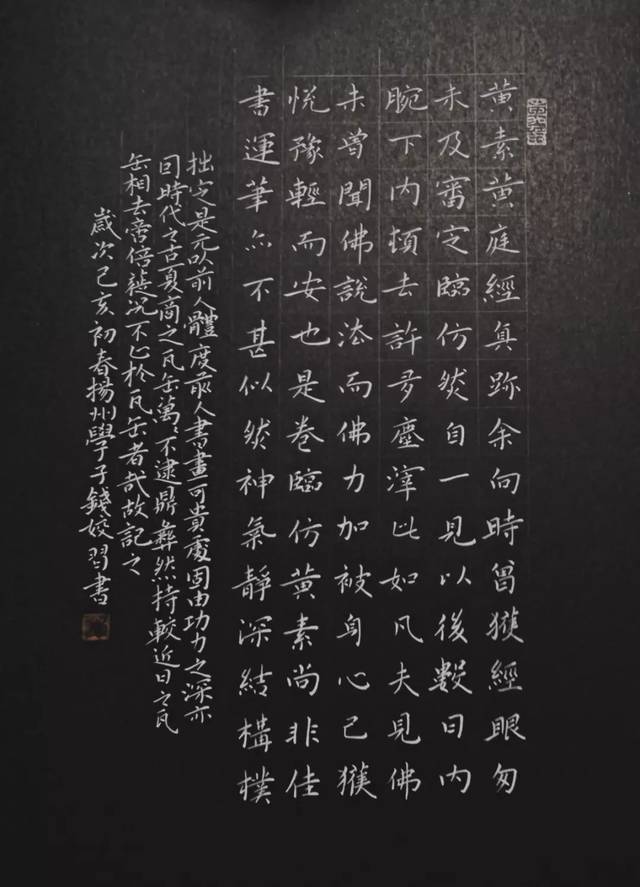 黄素黄庭經真跡余向時曾獲經眼匆
未及審定臨仿然自一見以後數日内
腕下内頓去許多塵滓此如凡夫見佛
未曾聞佛說法而佛力加被身心已獲
悦豫輕而安也是卷臨仿黄素尚非佳
書運筆亦不甚似然神氣靜深結構樸
拙定是元以前人體度前人書畫可貴處固由功力之深亦
因時代之古夏商之瓦缶萬々不逮鼎彝然持較近日之瓦
缶相去啻倍蓰况不止於瓦缶者哉故記之
歲次己亥初春揚州學子錢姣習書